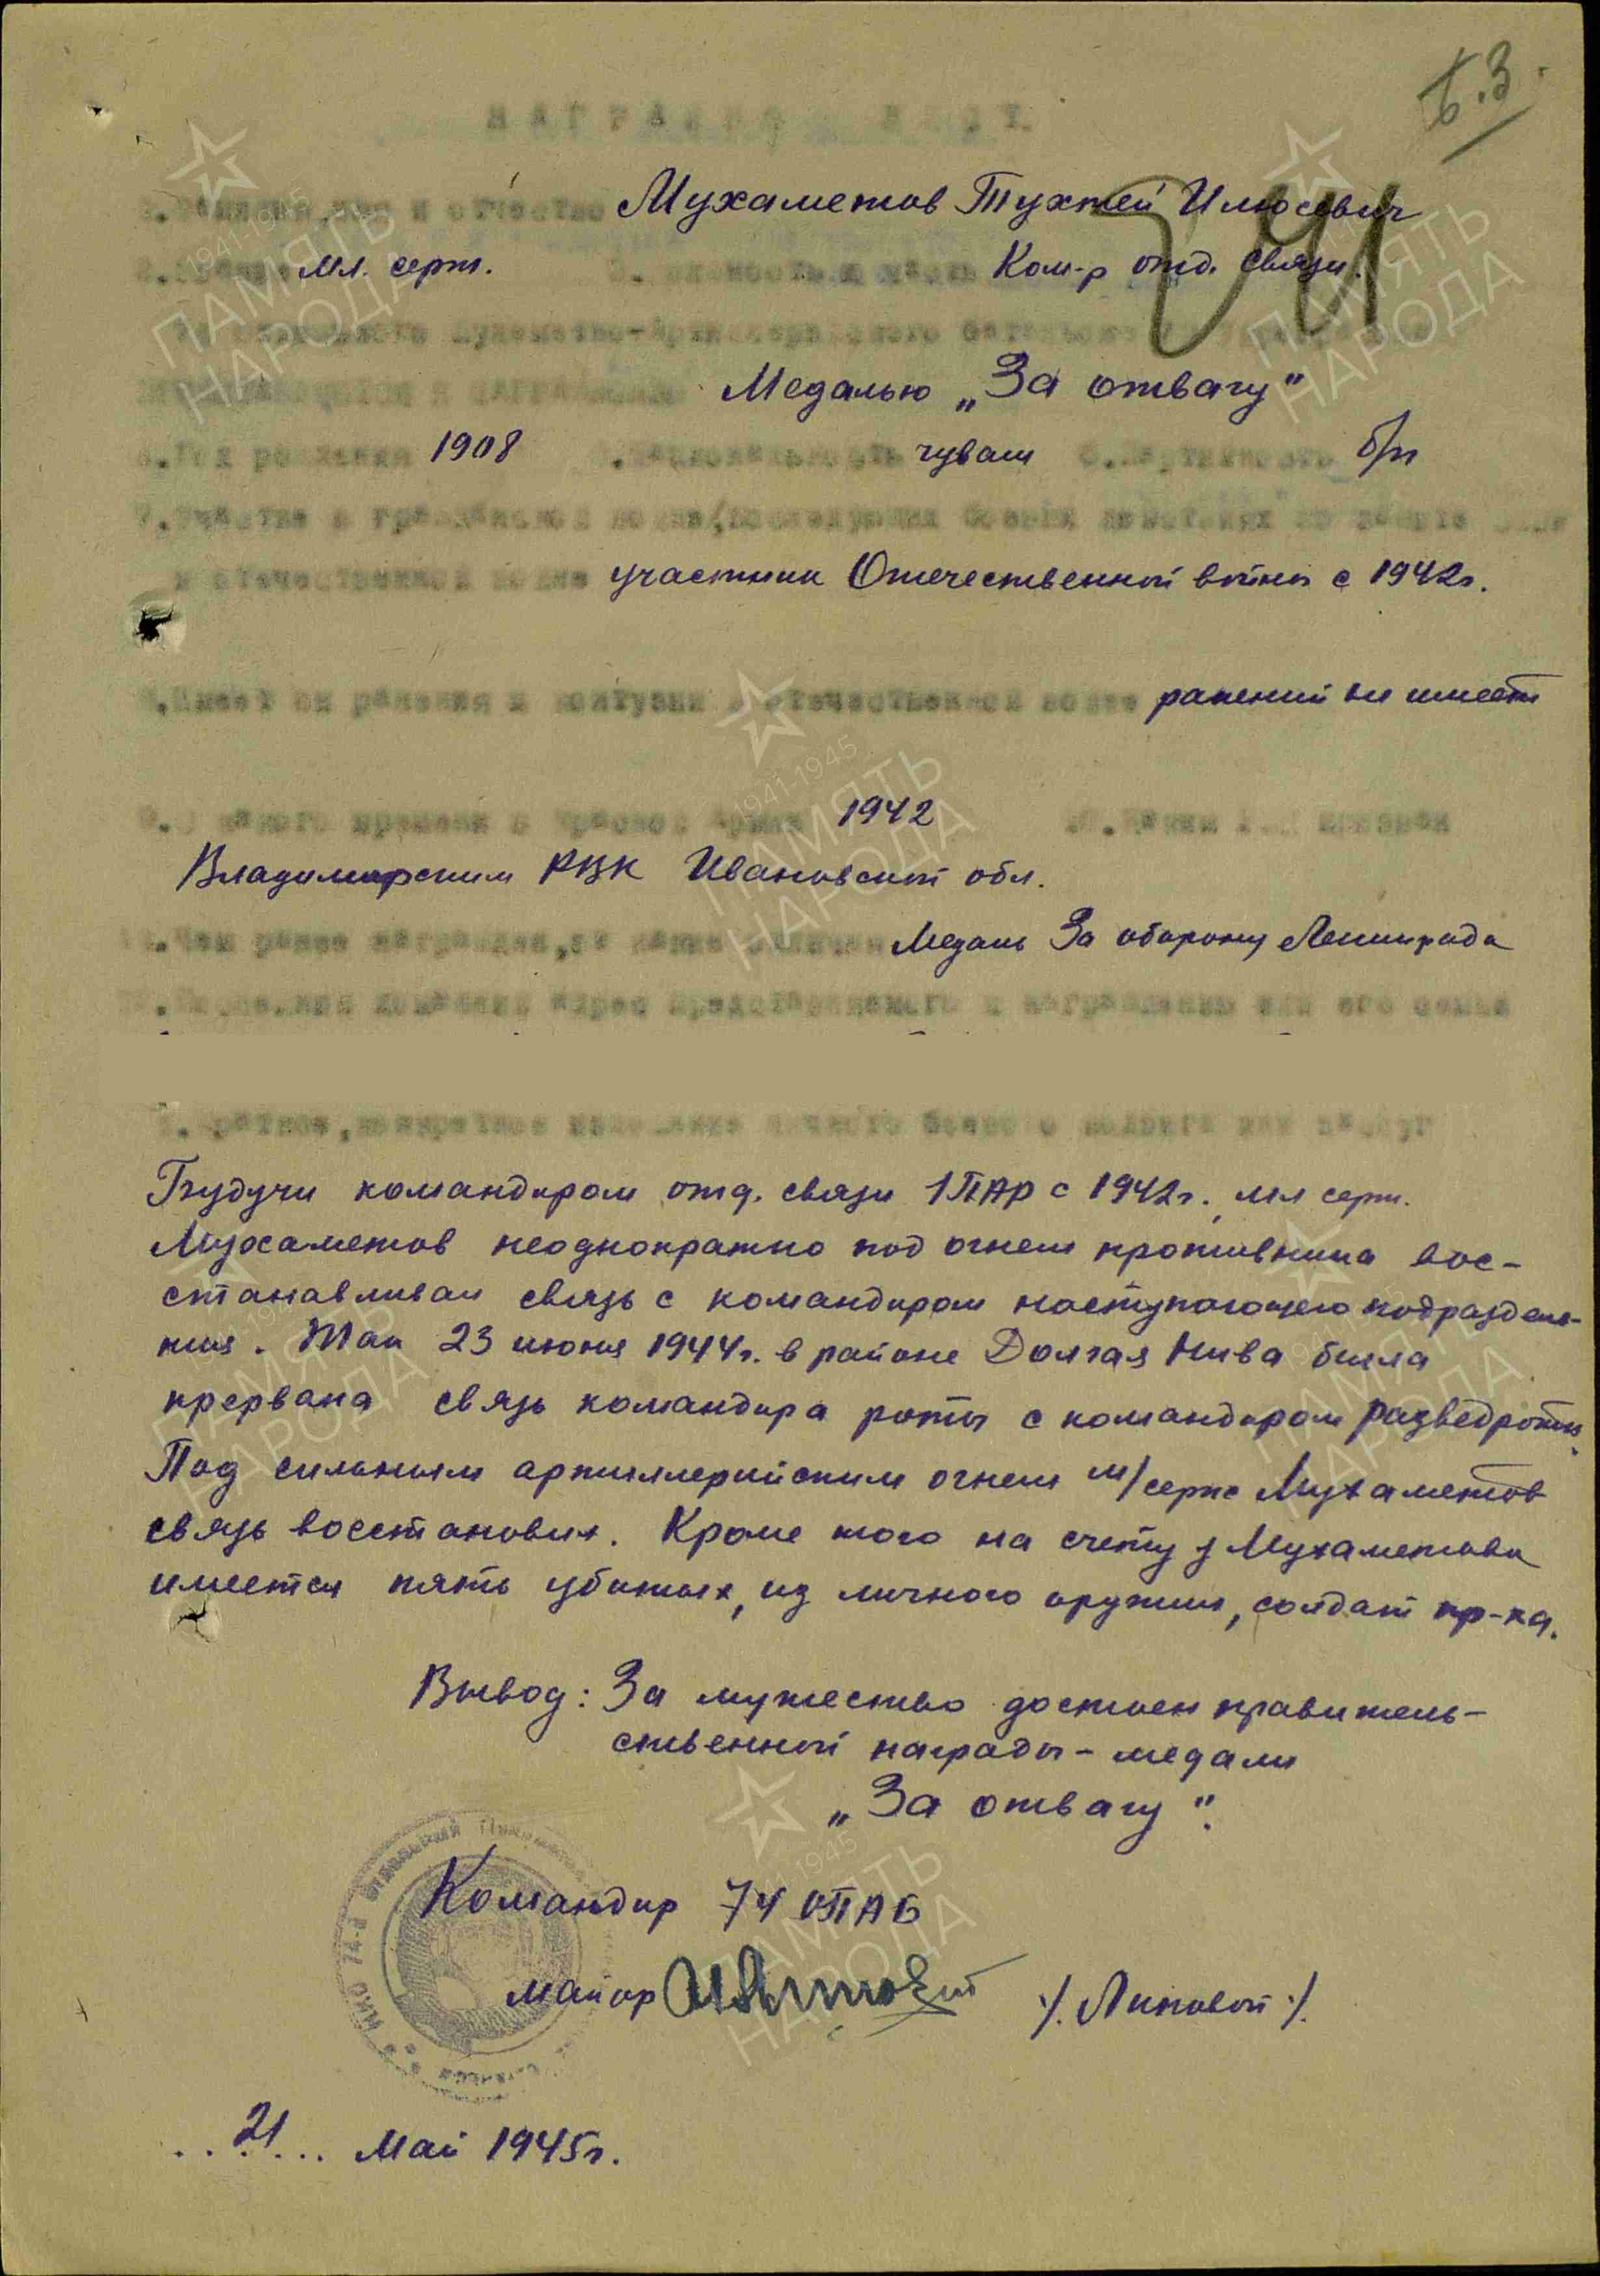 НАГРАДНОЙ ЛИСТ
1. Фамилия, имя и отчество Мухаметов Тухтей Илюсевич
2. Звание Мл. серж. 3. должность и часть Ком-р отд. связи.
74 отдельного Пулеметно-Артиллерийского батальона
представляется к награждению Медалью „За отвагу"
4. Год рождения 1908 5. Национальность чуваш 6. Партийность б/п
7. Участие в гражданской войне, последующих боевых действиях по защите СССР
и отечественной войне участник Отечественной войны с 1942г.
8. Имеет ли ранения и контузии в отечественной войне ранений не имеет
9. С какого времени в Красной Армии 1942 10. Каким РВК призван
Владимирским РВК Ивановской обл.
11. Чем ранее награжден, за какие отличия Медаль За оборону Ленинграда
12. Постоянный домашний адрес представляемого к награждению или его семьи
1. Краткое, конкретное изложение личного боевого подвига или заслуг
Будучи командиром отд. связи 1 ПАР с 1942г. мл серж.
Мухаметов неоднократно под огнем противника вос-
станавливал связь с командиром наступающего подразделе-
ния. Так 23 июня 1944г. в районе Долгая Нива была
прервана связь командира роты с командиром разведроты.
Под сильным артиллерийским огнем м/серж Мухаметов
связь восстановил. Кроме того на счету у Мухаметова
имеется пять убитых, из личного оружия, солдат пр-ка.
Вывод: За мужество достоен правитель-
ственной награды - медали
„За отвагу".
Командир 74 ОПАБ
майор /. Липовой ./.
..21... Май 1945г.